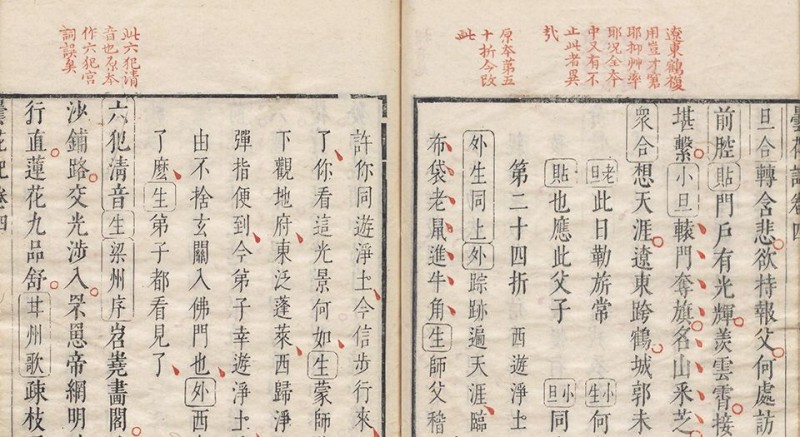 遼東鶴複
用豈才窘
耶抑艸率
耶況全本
中又有不
止此者異
哉
原本第五
十折今改
此
曇花記卷四
旦合轉含悲欲持報父何處訪
前腔貼門戶有光輝羨雲霄接
堪繫小旦轅門奪旗名山采芝
眾合想天涯遼東跨鶴城郭未
老旦此日勒旂常 小生何
貼也應此父子 小旦同
第二十四折 西遊淨土
外生同上外踪跡遍天涯臨
布袋老鼠進牛角生師父稽
此六犯清
音也原本
作六犯宮
詞誤矣
許你同遊淨土今信步行來
了你看這光景何如生蒙師
下觀地府東泛蓬萊西歸淨
彈指便到今弟子幸遊淨土
由不捨玄關入佛門也外西
了麼生弟子都看見了
六犯清音生梁州序岧嶤畫閣
沙鋪路交光涉入罘罳帝網明
行直蓮花九品舒甘州歌疎枝
曇花記卷四